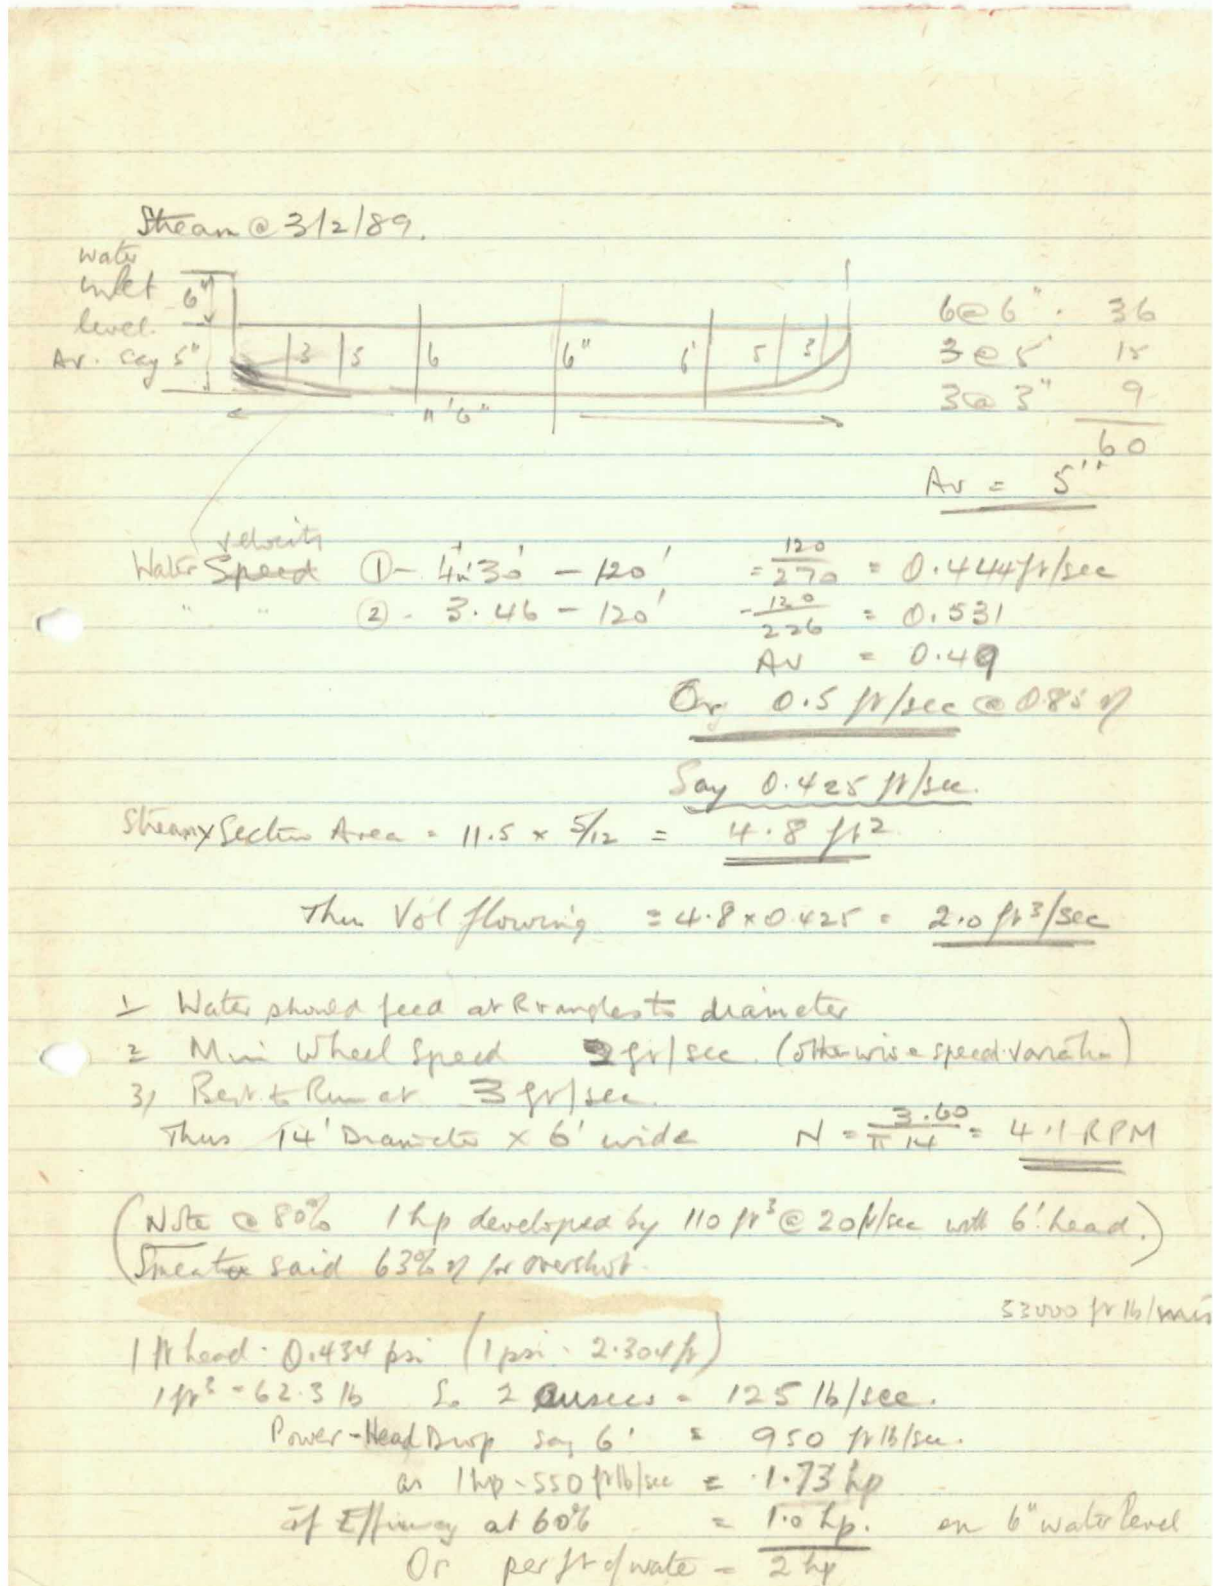 Stream @ 3/2/89.
water
inlet 6"
level.
Av. say 5"
3 5 6 6" 6 5 3
11' 6"
6 @ 6" . 36
3 @ 5 15
3 @ 3" 9
60
Av = 5"
velocity
Water Speed ① - 4m 30 - 120' = 120/270 = 0.444 ft/sec
" " ② - 3.46 - 120' - 120/226 = 0.531
Av = 0.49
Or 0.5 ft/sec @ 0.85 η
Say 0.425 ft/sec.
Stream x Section Area = 11.5 x 5/12 = 4.8 ft2
Then Vol flowing = 4.8 x 0.425 = 2.0 ft3/sec
1 Water should feed at Rt angles to diameter
2 Min Wheel Speed 2 ft/sec. (otherwise speed variation)
3) Best to Run at 3 ft/sec.
Thus 14' Diameter x 6' wide N = 3.60/π 14 = 4.1 RPM
(Note @ 80% 1 hp developed by 110 ft3 @ 20 ft/sec with 6' head.)
Smeaton said 63% η for overshot.
33000 ft lb/min
1 ft head . 0.434 psi (1 psi . 2.304 ft)
1 ft3 = 62.3 lb So 2 cusecs = 125 lb/sec.
Power - Head Drop say 6' = 950 ft lb/sec.
as 1 hp - 550 ft lb/sec = 1.73 hp
if Efficiency at 60% = 1.0 hp. on 6" water level
Or per ft of water = 2 hp